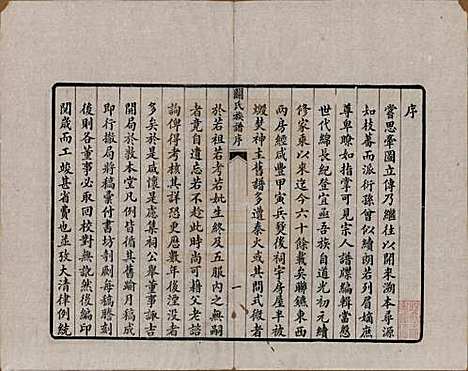 序
嘗思牽圖立傳乃繼往以開來溯本尋源
知枝蕃而派衍孫曾似續朗若列眉嫡庶
尊卑瞭如指掌可見宗人譜牒編輯當愈
世代綿長紀登宜亟吾族自道光初元續
修家乘以來迄今六十餘載矣聯鑣東西
兩房經咸豐甲寅兵燹後祠宇房屋半放
煨焚神主舊譜多遭秦火或其間式微者
關氏族譜 序
一
於若祖若考若妣生終及五服內之無嗣
者竟自遺忘若不趁此時可積父老諮
詢俾得考核其詳恐更歷數年後湮沒者
多矣於是感懷是慮集祠公舉董事諏吉
開局於敦本堂凡例皆備其舊踰月稿成
即行撤局將稿彙付書坊剞劂每稿樣
後則各董事必取回校對無訛然後編印
閱歲而工竣甚省費也並攷大清律例統